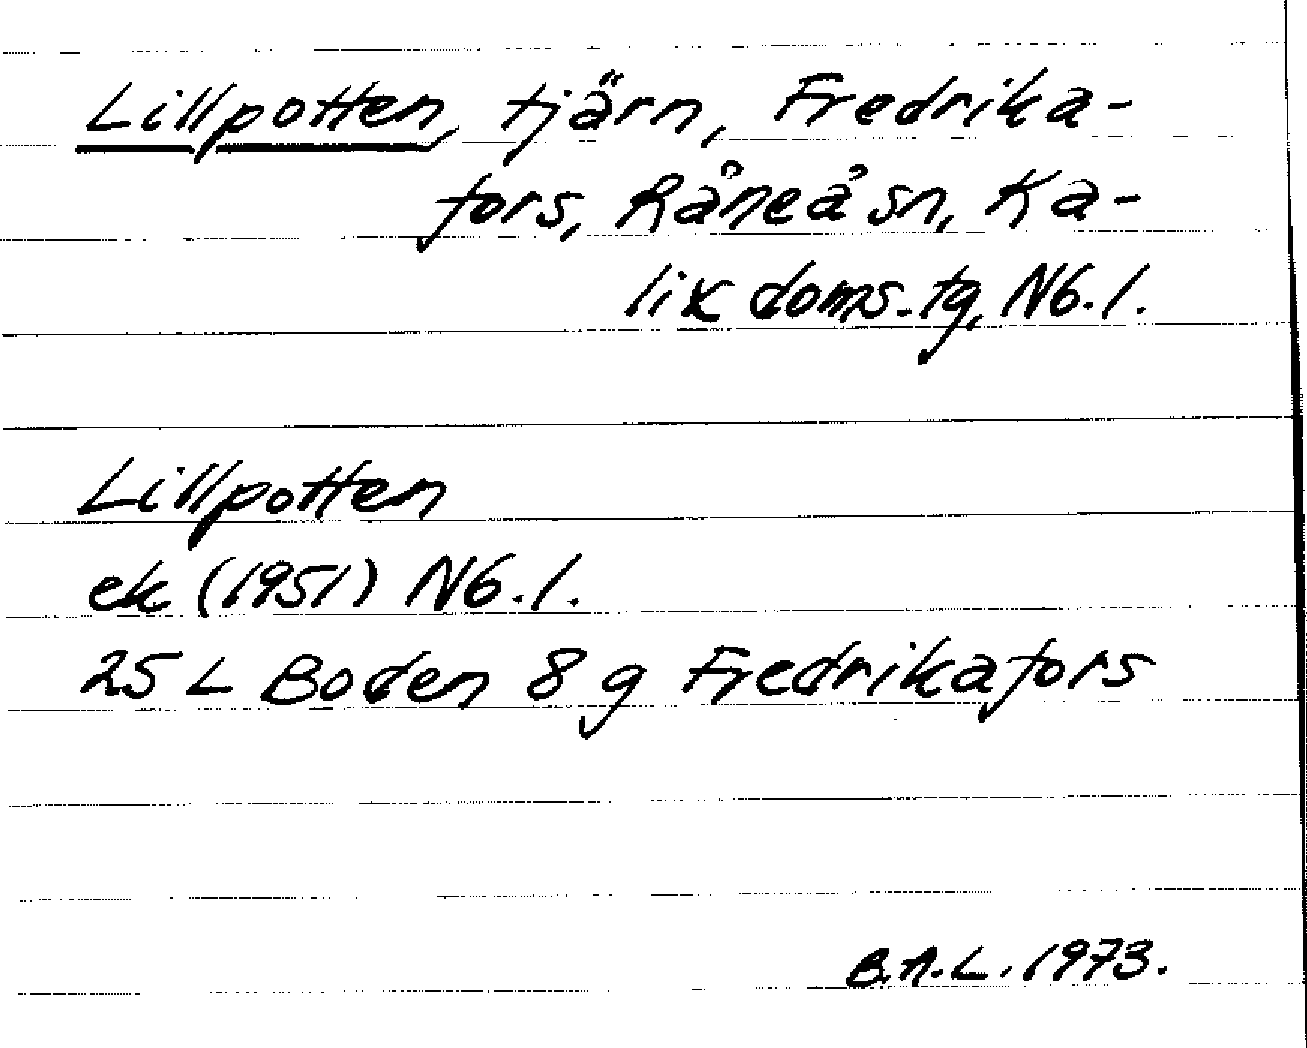 Lillpotten, tjärn, Fredrika-
fors, Råneå sn, Ka-
lix doms.tg, Nb.l.
Lillpotten
ek (1951) Nb.l.
25 L Boden 8 g Fredrikafors
B.A.L. 1973.